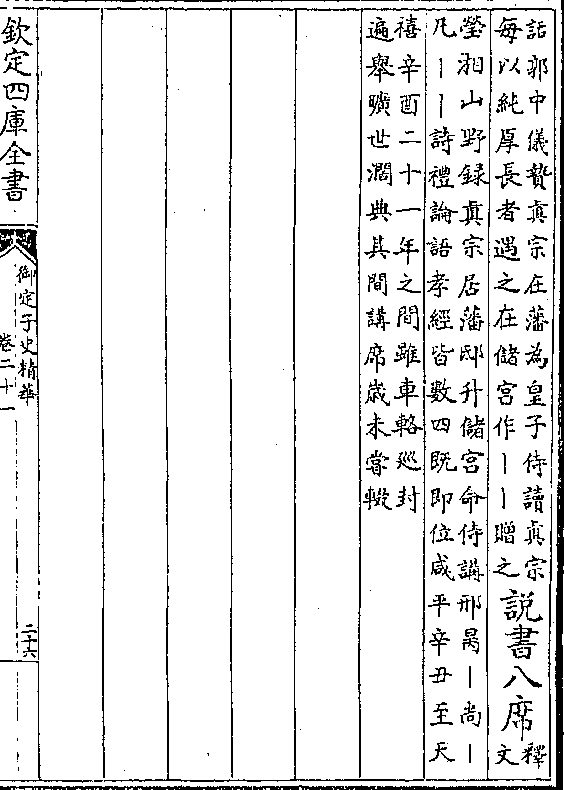 話郭中儀贄真宗在藩為皇子侍讀真宗
每以純厚長者遇之在儲宮作丨丨贈之
說書八席
釋
文
瑩湘山野録真宗居藩邸升儲宮命侍講邢昺丨尚丨
凡丨丨詩禮論語孝經皆數四既即位咸平辛丑至天
禧辛酉二十一年之間雖車輅巡封
遍舉曠世濶典其間講席歳未嘗輟
欽定四庫全書
御定子史精華
卷二十一
二十六